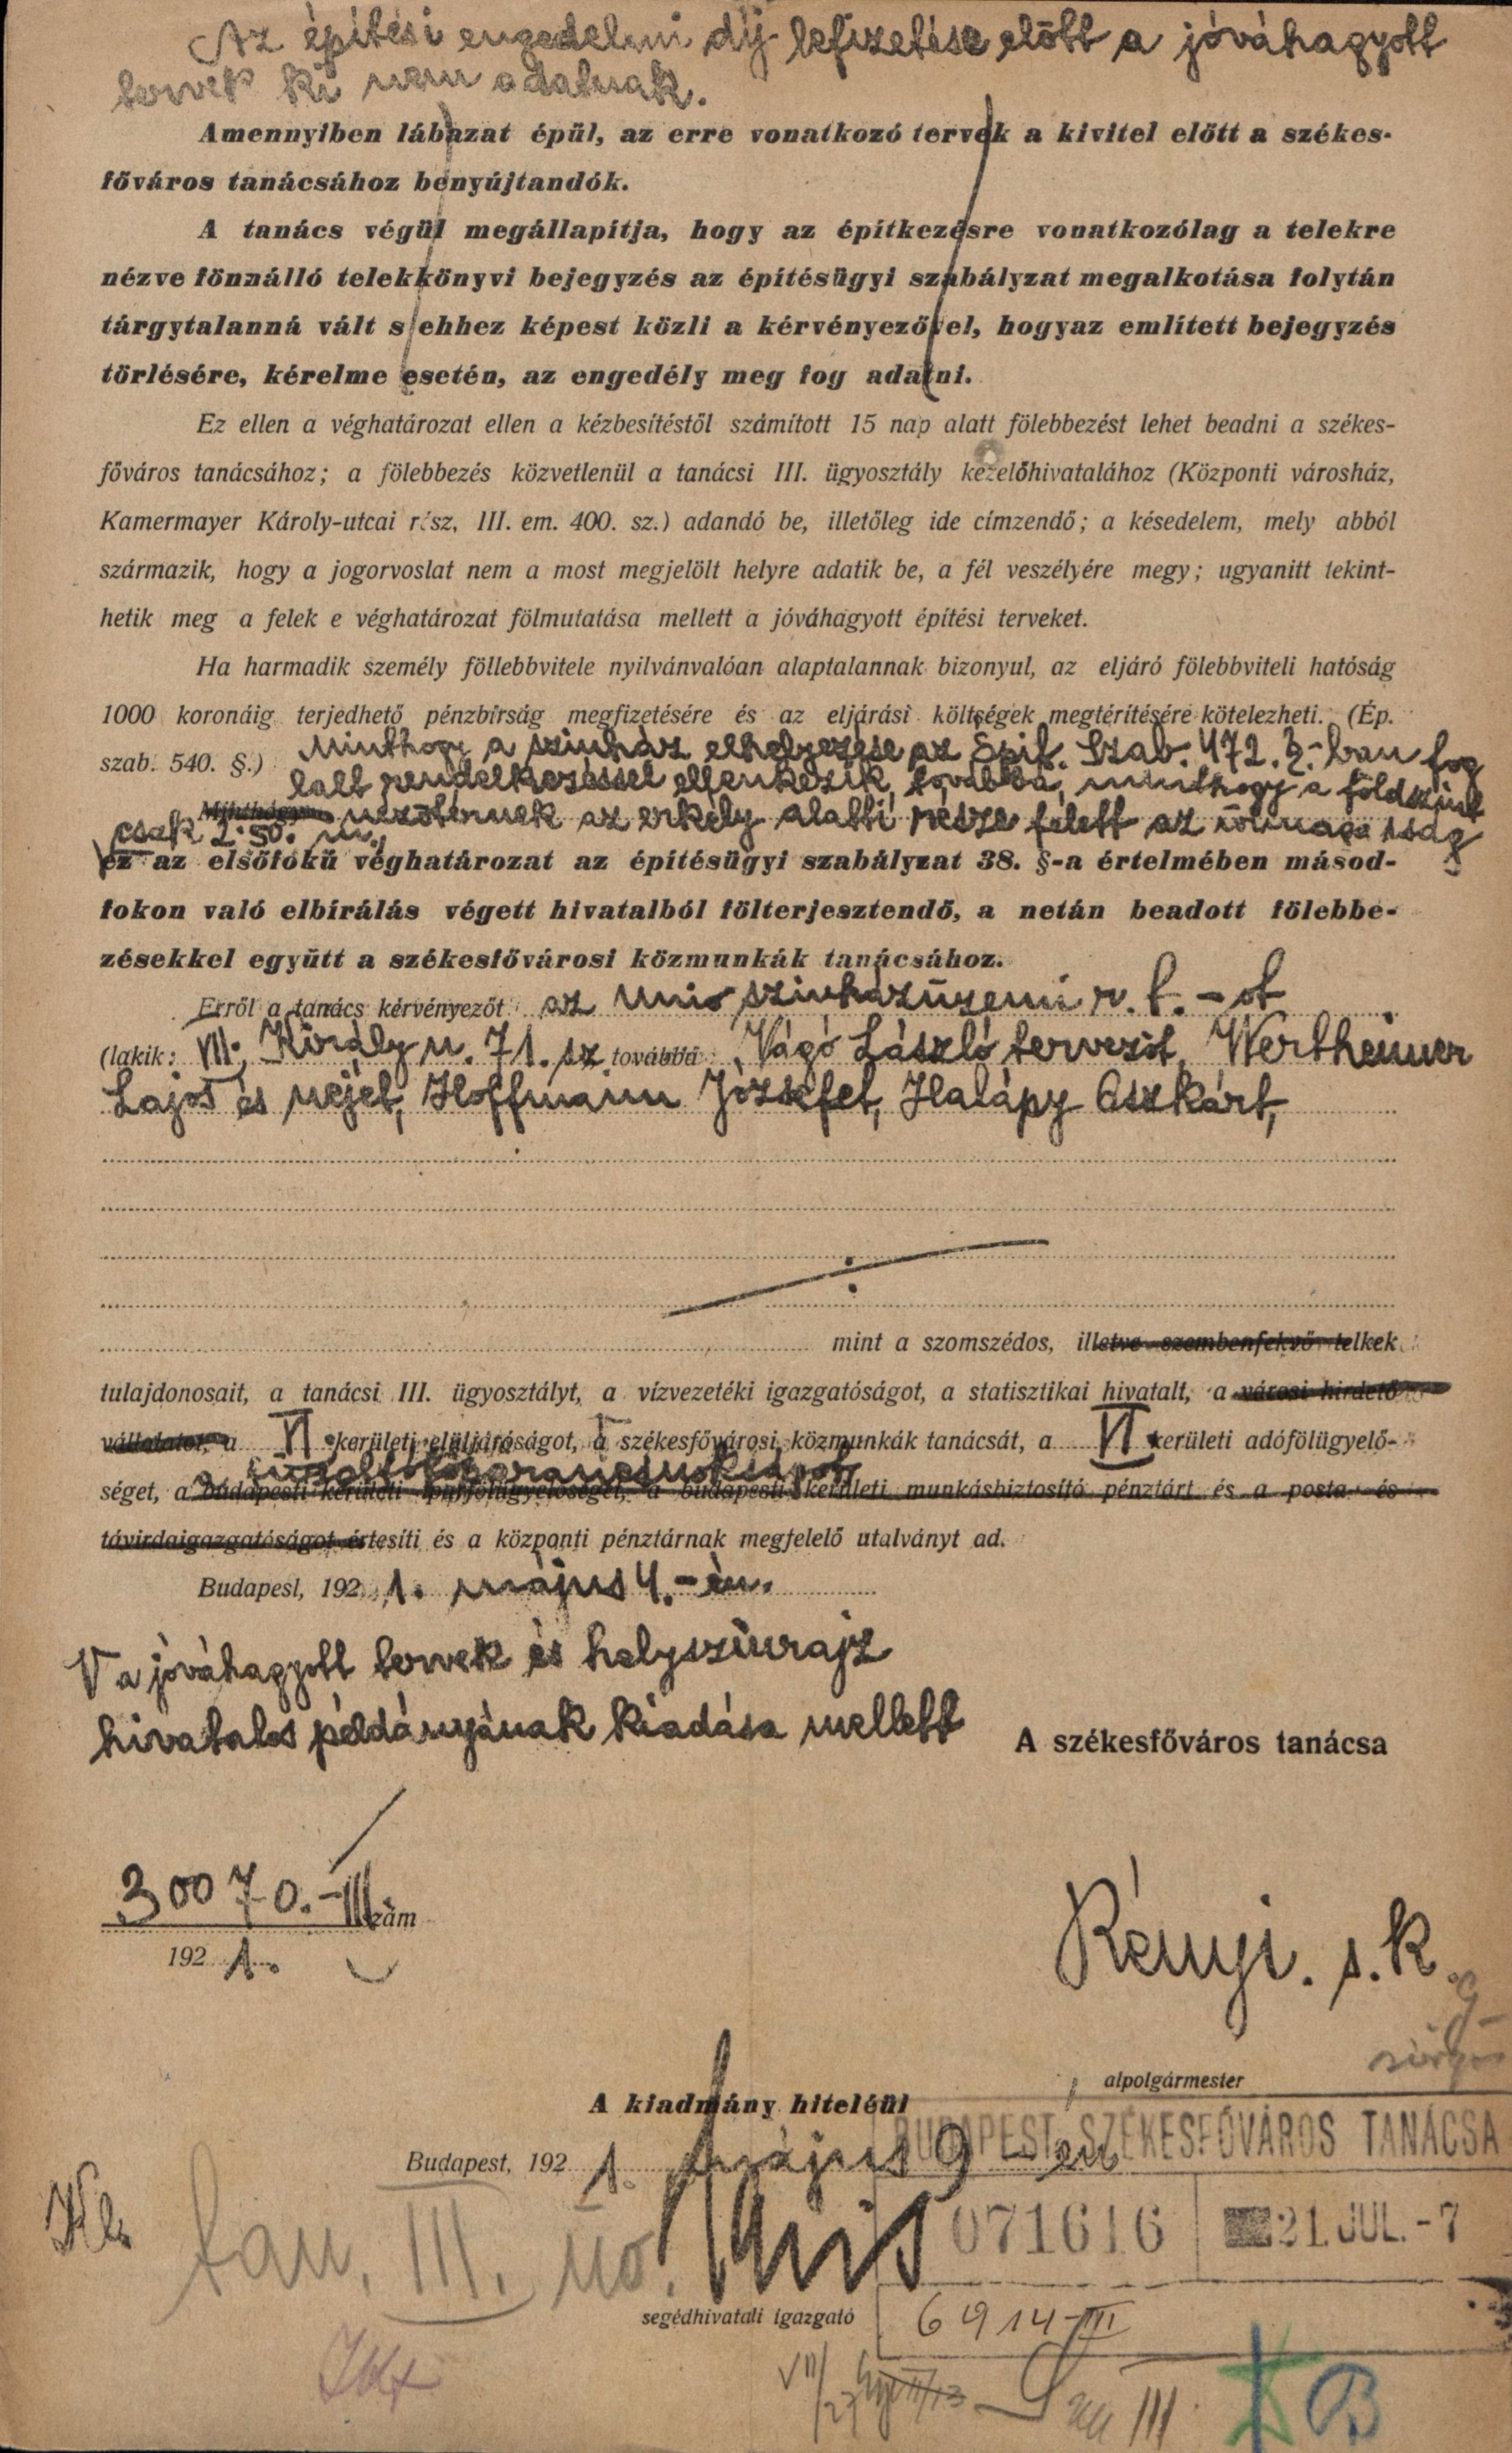 Az építési engedelmi díj lefizetése előtt a jóváhagyott
tervek ki nem adatnak.
Amennyiben lábazat épül, az erre vonatkozó tervek a kivitel előtt a székes-
főváros tanácsához benyújtandók.
A tanács végül megállapítja, hogy az építkezésre vonatkozólag a telekre
nézve fönnálló telekkönyvi bejegyzés az építésügyi szabályzat megalkotása folytán
tárgytalanná vált s ehhez képest közli a kérvényezővel, hogyaz említett bejegyzés
törlésére, kérelme esetén, az engedély meg fog adatni.
Ez ellen a véghatározat ellen a kézbesítéstől számított 15 nap alatt fölebbezést lehet beadni a székes-
főváros tanácsához; a fölebbezés közvetlenül a tanácsi III. ügyosztály kezelőhivatalához (Központi városház,
Kamermayer Károly-utcai rész, III. em. 400. sz.) adandó be, illetőleg ide címzendő; a késedelem, mely abból
származik, hogy a jogorvoslat nem a most megjelölt helyre adatik be, a fél veszélyére megy; ugyanitt tekint-
hetik meg a felek e véghatározat fölmutatása mellett a jóváhagyott építési terveket.
Ha harmadik személy föllebbvitele nyilvánvalóan alaptalannak bizonyul, az eljáró fölebbviteli hatóság
1000 koronáig terjedhető pénzbírság megfizetésére és az eljárási költségek megtérítésére kötelezheti. (Ép.
szab. 540. §.) Minthogy a szinház elhelyezése az Épit. Szab. 472. §.-ban fog
lalt rendelkezéssel ellenkezik, továbbá, minthogy a földszint
Minthogy nézőtérnek az erkély alatti része felett az űrmagasság
csak 2.50. m.,
ez az elsőfokú véghatározat az építésügyi szabályzat 38. §-a értelmében másod-
fokon való elbírálás végett hivatalból fölterjesztendő, a netán beadott fölebbe-
zésekkel együtt a székesfővárosi közmunkák tanácsához.
Erről a tanács kérvényezőt az Unio szinházüzemi r. t.-ot
(lakik: VII. Király u. 71. sz. továbbá Vágó László tervezőt, Wertheimer
Lajos és nejét, Hoffmann Józsefet, Halápy Oszkárt,
mint a szomszédos, illetve szembenfekvő telkek
tulajdonosait, a tanácsi III. ügyosztályt, a vízvezetéki igazgatóságot, a statisztikai hivatalt, a városi hirdető
vállalatot, a VI. kerületi elüljáróságot, a székesfővárosi közmunkák tanácsát, a VI. kerületi adófölügyelő-
a tűzoltófőparancsnokságot
séget, a budapesti kerületi iparfölügyelőséget, a budapesti kerületi munkásbiztosító pénztárt és a posta- és
távirdaigazgatóságot értesíti és a központi pénztárnak megfelelő utalványt ad.
Budapest, 192 1. május 4.-én.
V a jóváhagyott tervek és helyszinrajz
hivatalos példányának kiadása mellett
A székesfőváros tanácsa
30070.-III szám
192 1.
Rényi. s. k.
alpolgármester
A kiadmány hiteléül
Budapest, 192 1. május 9-én
BUDAPEST SZÉKESFŐVÁROS TANÁCSA
071616
21. JUL. -7
tan. III. üo.
segédhivatali igazgató
6914-III
VII/27
III
B